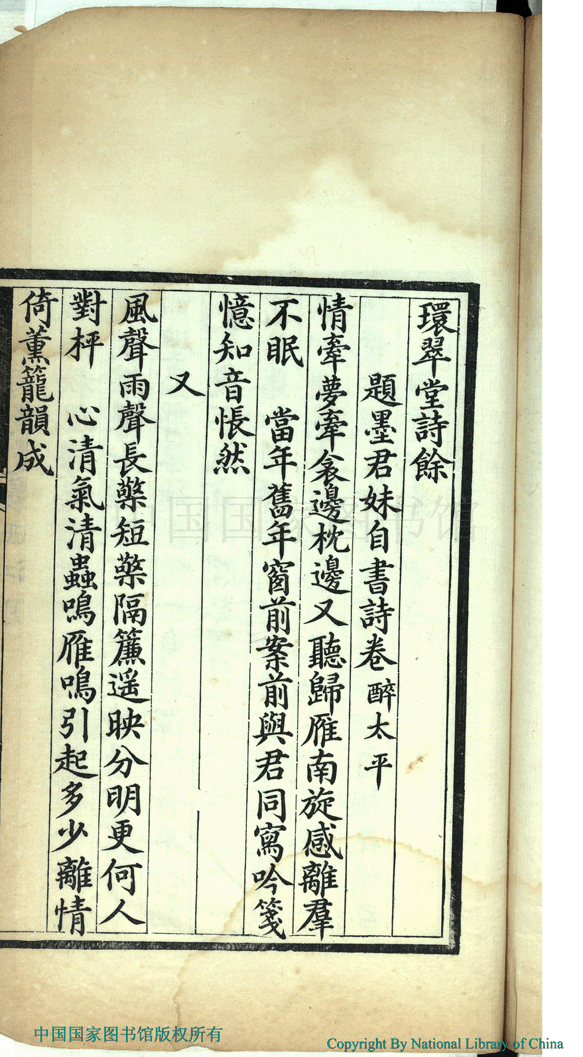 環翠堂詩餘
題墨君妹自書詩卷 醉太平
情牽夢牽衾邊枕邊又聽歸雁南旋感離羣
不眠 當年舊年窗前案前與君同寫吟箋
憶知音悵然
又
風聲雨聲長檠短檠隔簾遥映分明更何人
對枰 心清氣清蟲鳴雁鳴引起多少離情
倚薰籠韻成
中国国家图书馆
中国国家图书馆版权所有
Copyright By National Library of China